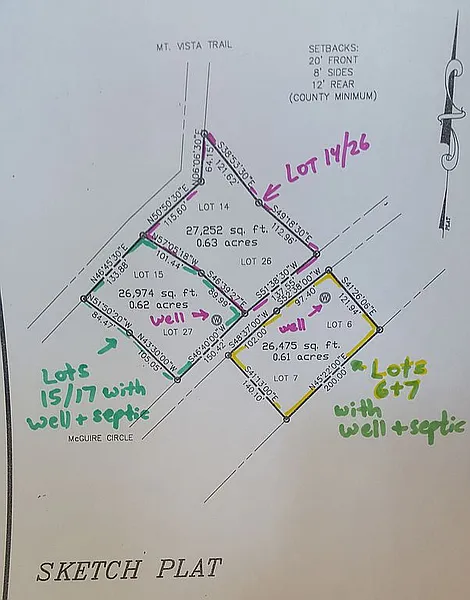 MT. VISTA TRAIL
SETBACKS:
20' FRONT
8' SIDES
12' REAR
(COUNTY MINIMUM)
N06°06'30"E
64.15
S38°53'30"E
121.62
LOT 14/26
N50°50'30"E
115.60
LOT 14
27,252 sq. ft.
0.63 acres
S49°18'30"E
112.96
N46°45'30"E
133.88
N57°05'18"W
101.44
LOT 26
LOT 15
26,974 sq. ft.
0.62 acres
88.99
S51°38'30"W
137.55
97.40
S41°26'06"E
121.94
N51°50'20"W
84.47
LOT 27
well
well
LOT 6
N43°00'00"W
105.05
S46°40'00"W
102.00
26,475 sq. ft.
0.61 acres
Lots
15/17 with
well + septic
LOT 7
S41°13'00"E
140.10
N45°22'00"E
200.00
Lots
6+7
with
well + septic
McGUIRE CIRCLE
SKETCH PLAT